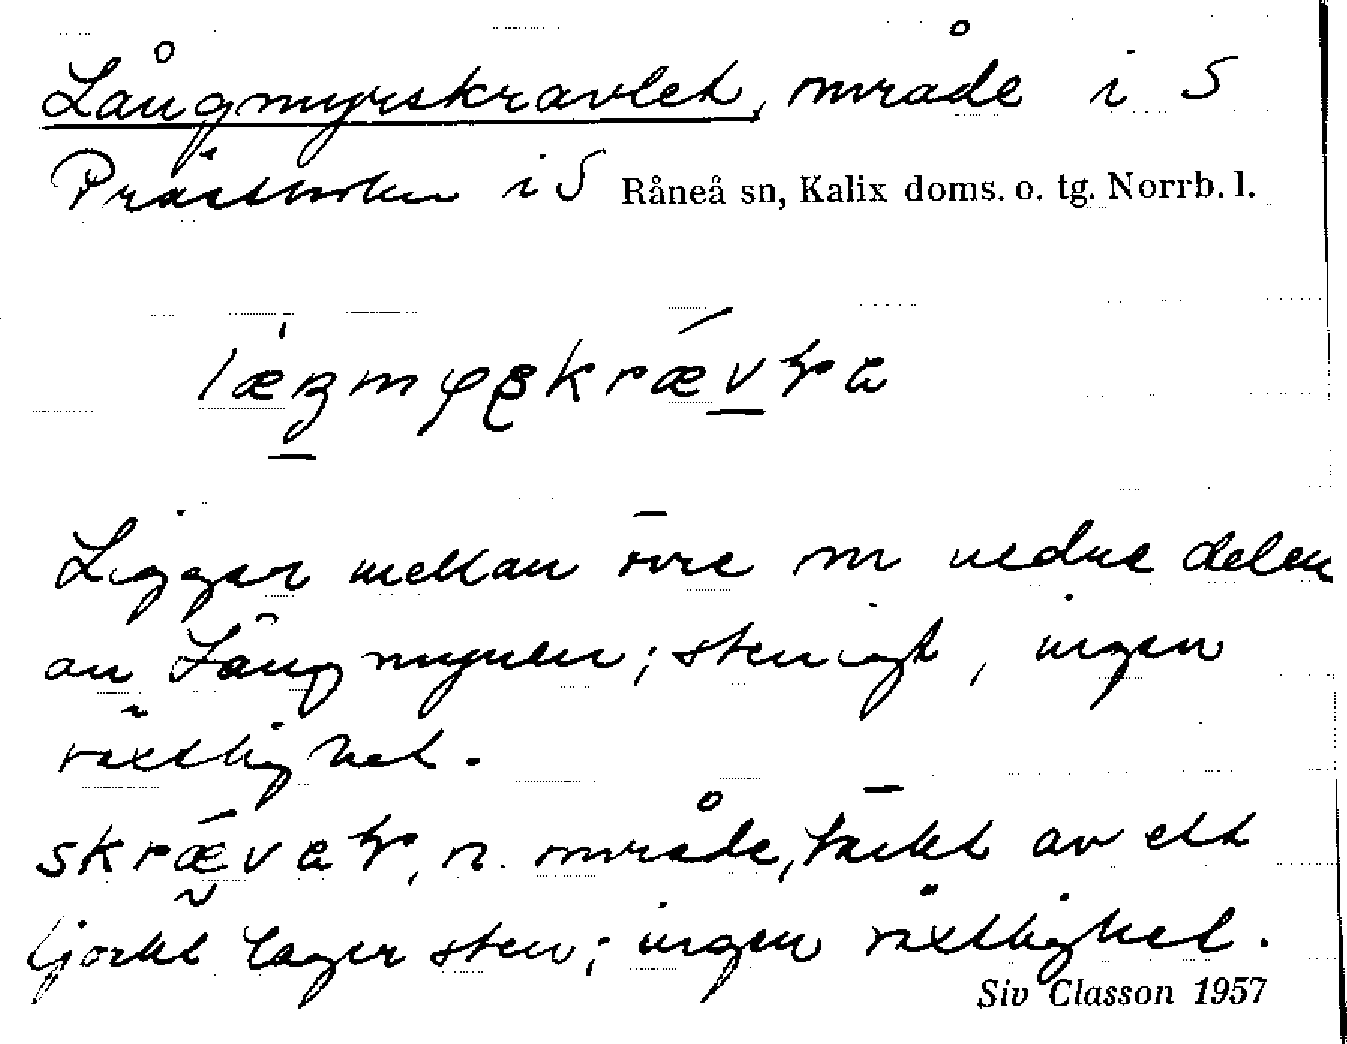 Långmyrskravlet, område i S
Prästholm i S Råneå sn, Kalix doms. o. tg. Norrb. l.
Ligger mellan övre och nedre delen
av Långmyren; stenigt, ingen
växtlighet.
n. område, täckt av ett
tjockt lager sten; ingen växtlighet.
Siv Classon 1957